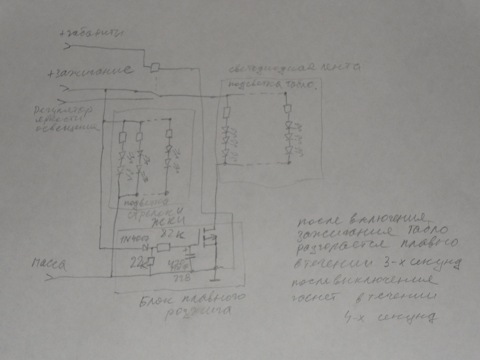 + габариты
+ зажигание
светодиодная лента
подсветка табло
регулятор
яркости
освещения
подсветка
ЖКИ
1N4002
82к
22к
Масса
Блок плавного
розжига
после включения
зажигания табло
разгорается плавно
в течении 3-х секунд
после выключения
гаснет в течении
4-х секунд